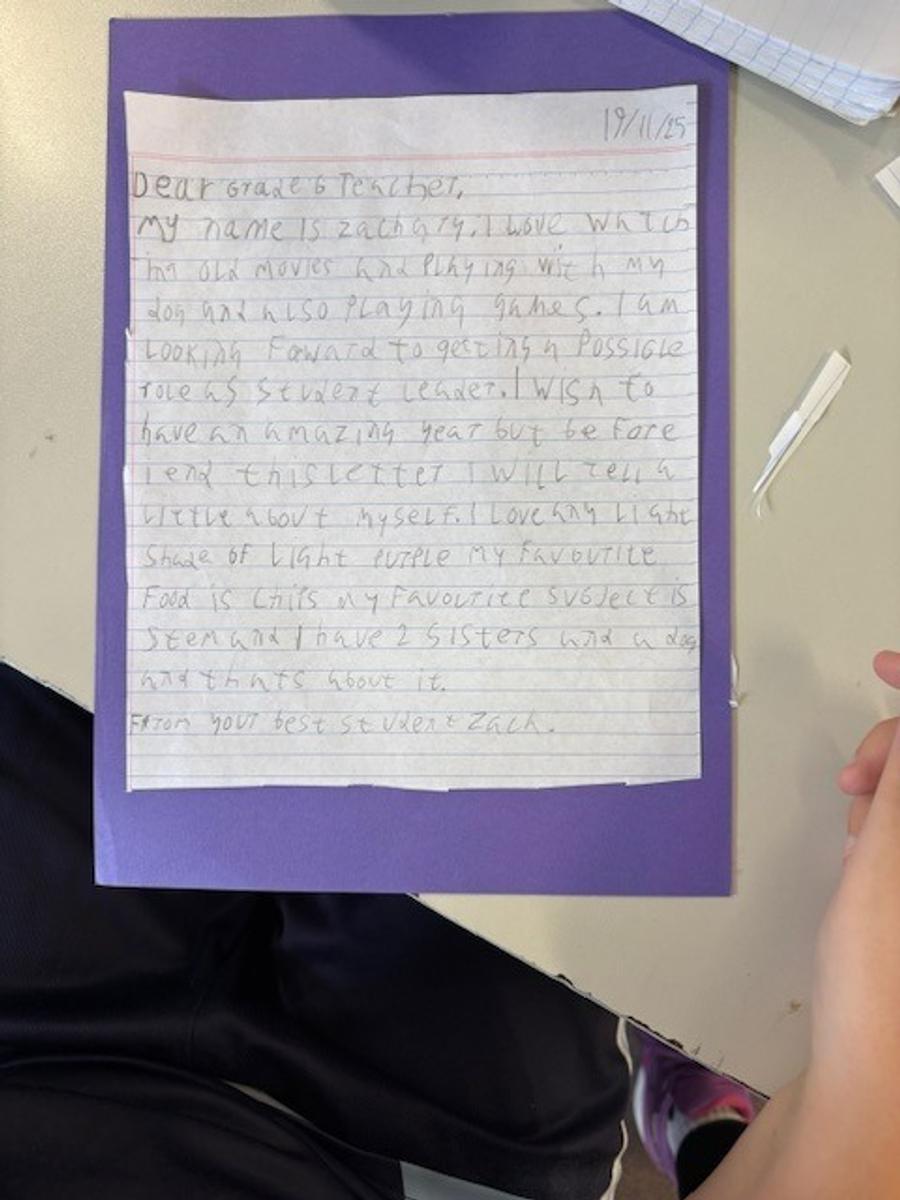 19/11/25
Dear Grade 6 Teacher,
My name is zachary. I Love Whatch
ing old movies and Playing with my
dog and also Playing games. I am
Looking Foward to getting a Possible
role as student Leader. I wish to
have an amazing year but before
I end this letter I will tell a
Little about myself. I Love any Light
shade of Light purple my favourite
Food is chips my favourite subject is
Stem and I have 2 sisters and a dog
and thats about it.
From your best student Zach.